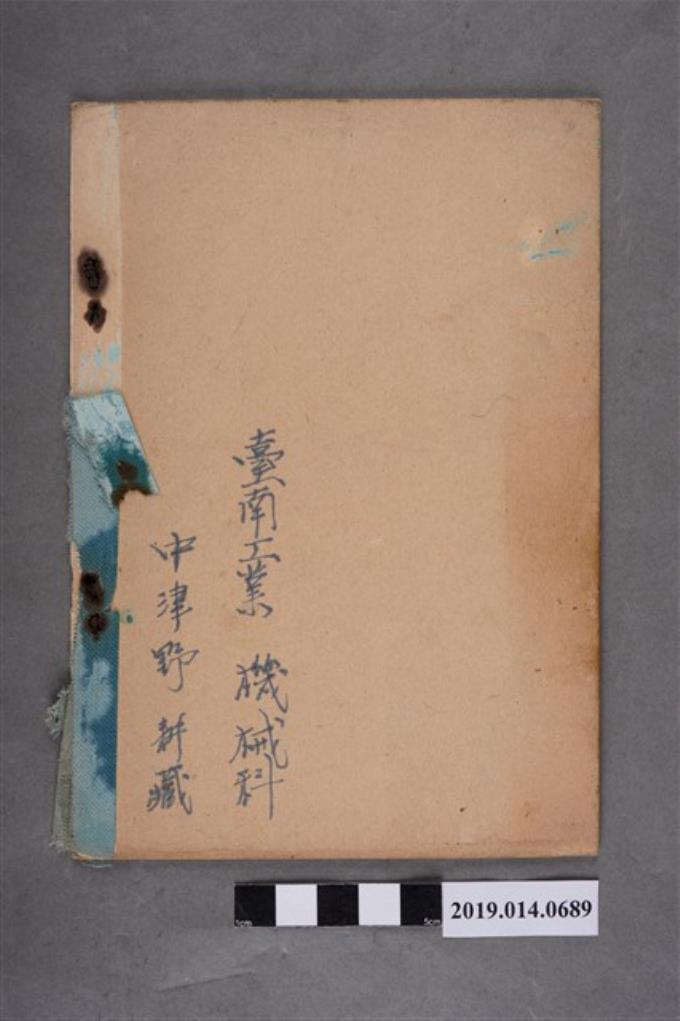 臺南工業 機械科
中津野 耕藏
1cm
5cm
2019.014.0689